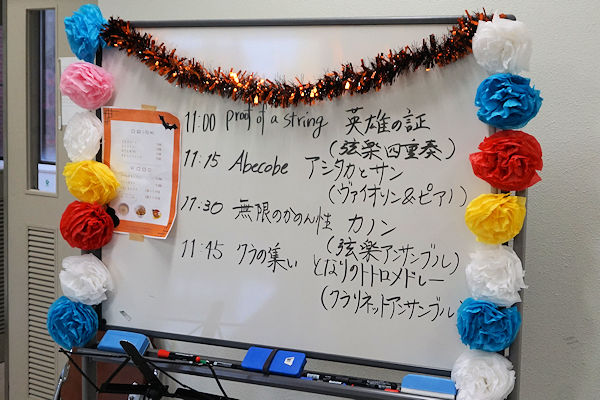 11:00 Proof of a string 英雄の証
(弦楽四重奏)
11:15 Abecobe アシタカとサン
(ヴァイオリン&ピアノ)
11:30 無限のかのん性 カノン
(弦楽アンサンブル)
11:45 クラの集い となりのトトロメドレー
(クラリネットアンサンブル)